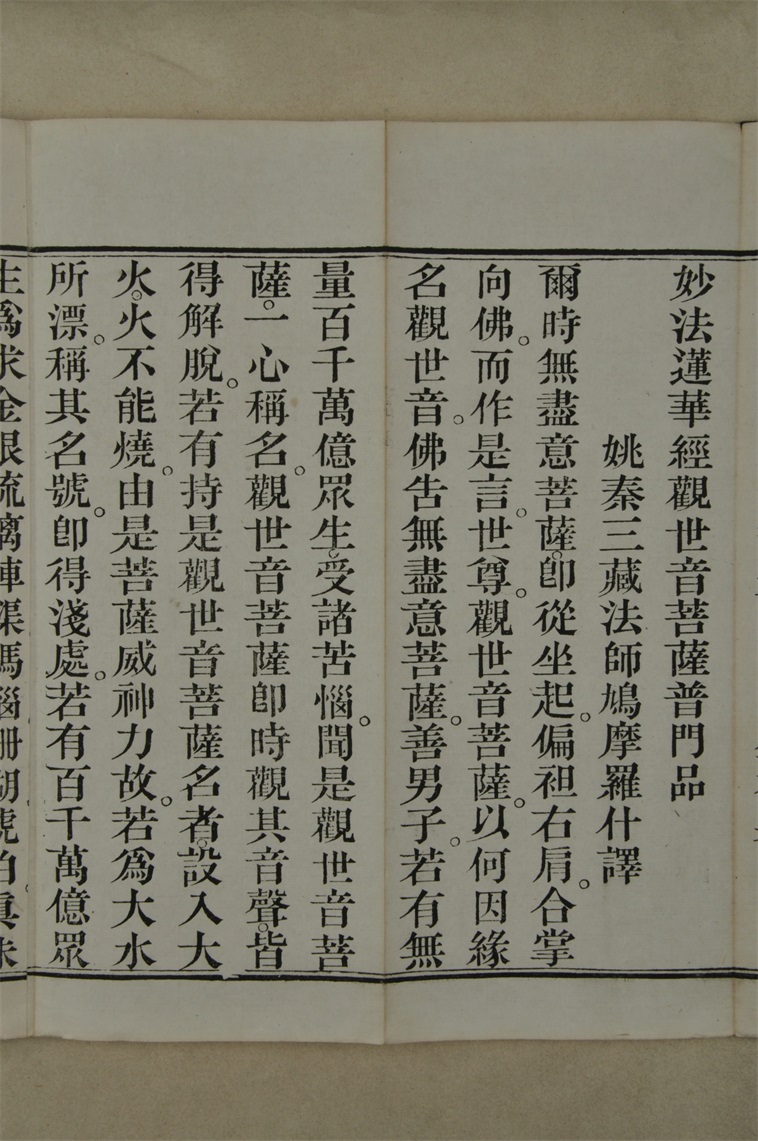 妙法蓮華經觀世音菩薩普門品
姚秦三藏法師鳩摩羅什譯
爾時無盡意菩薩。卽從坐起。偏袒右肩。合掌
向佛。而作是言。世尊。觀世音菩薩。以何因緣
名觀世音。佛告無盡意菩薩。善男子。若有無
量百千萬億眾生。受諸苦惱。聞是觀世音菩
薩。一心稱名。觀世音菩薩卽時觀其音聲。皆
得解脫。若有持是觀世音菩薩名者。設入大
火。火不能燒。由是菩薩威神力故。若爲大水
所漂。稱其名號。卽得淺處。若有百千萬億眾
生爲求金銀琉璃車渠碼瑙珊瑚琥珀眞朱